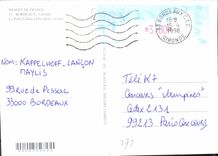 IMAGES DE FRANCE
33 - BORDEAUX
BORDEAUX
GIRONDE
NOM: KAPPELHOFF-LANÇON
MAYLIS
99RUE de Pessac
33000 BORDEAUX
Télé K7
Concours "Vampires"
Cedex 2131
99213 Paris Concours
271